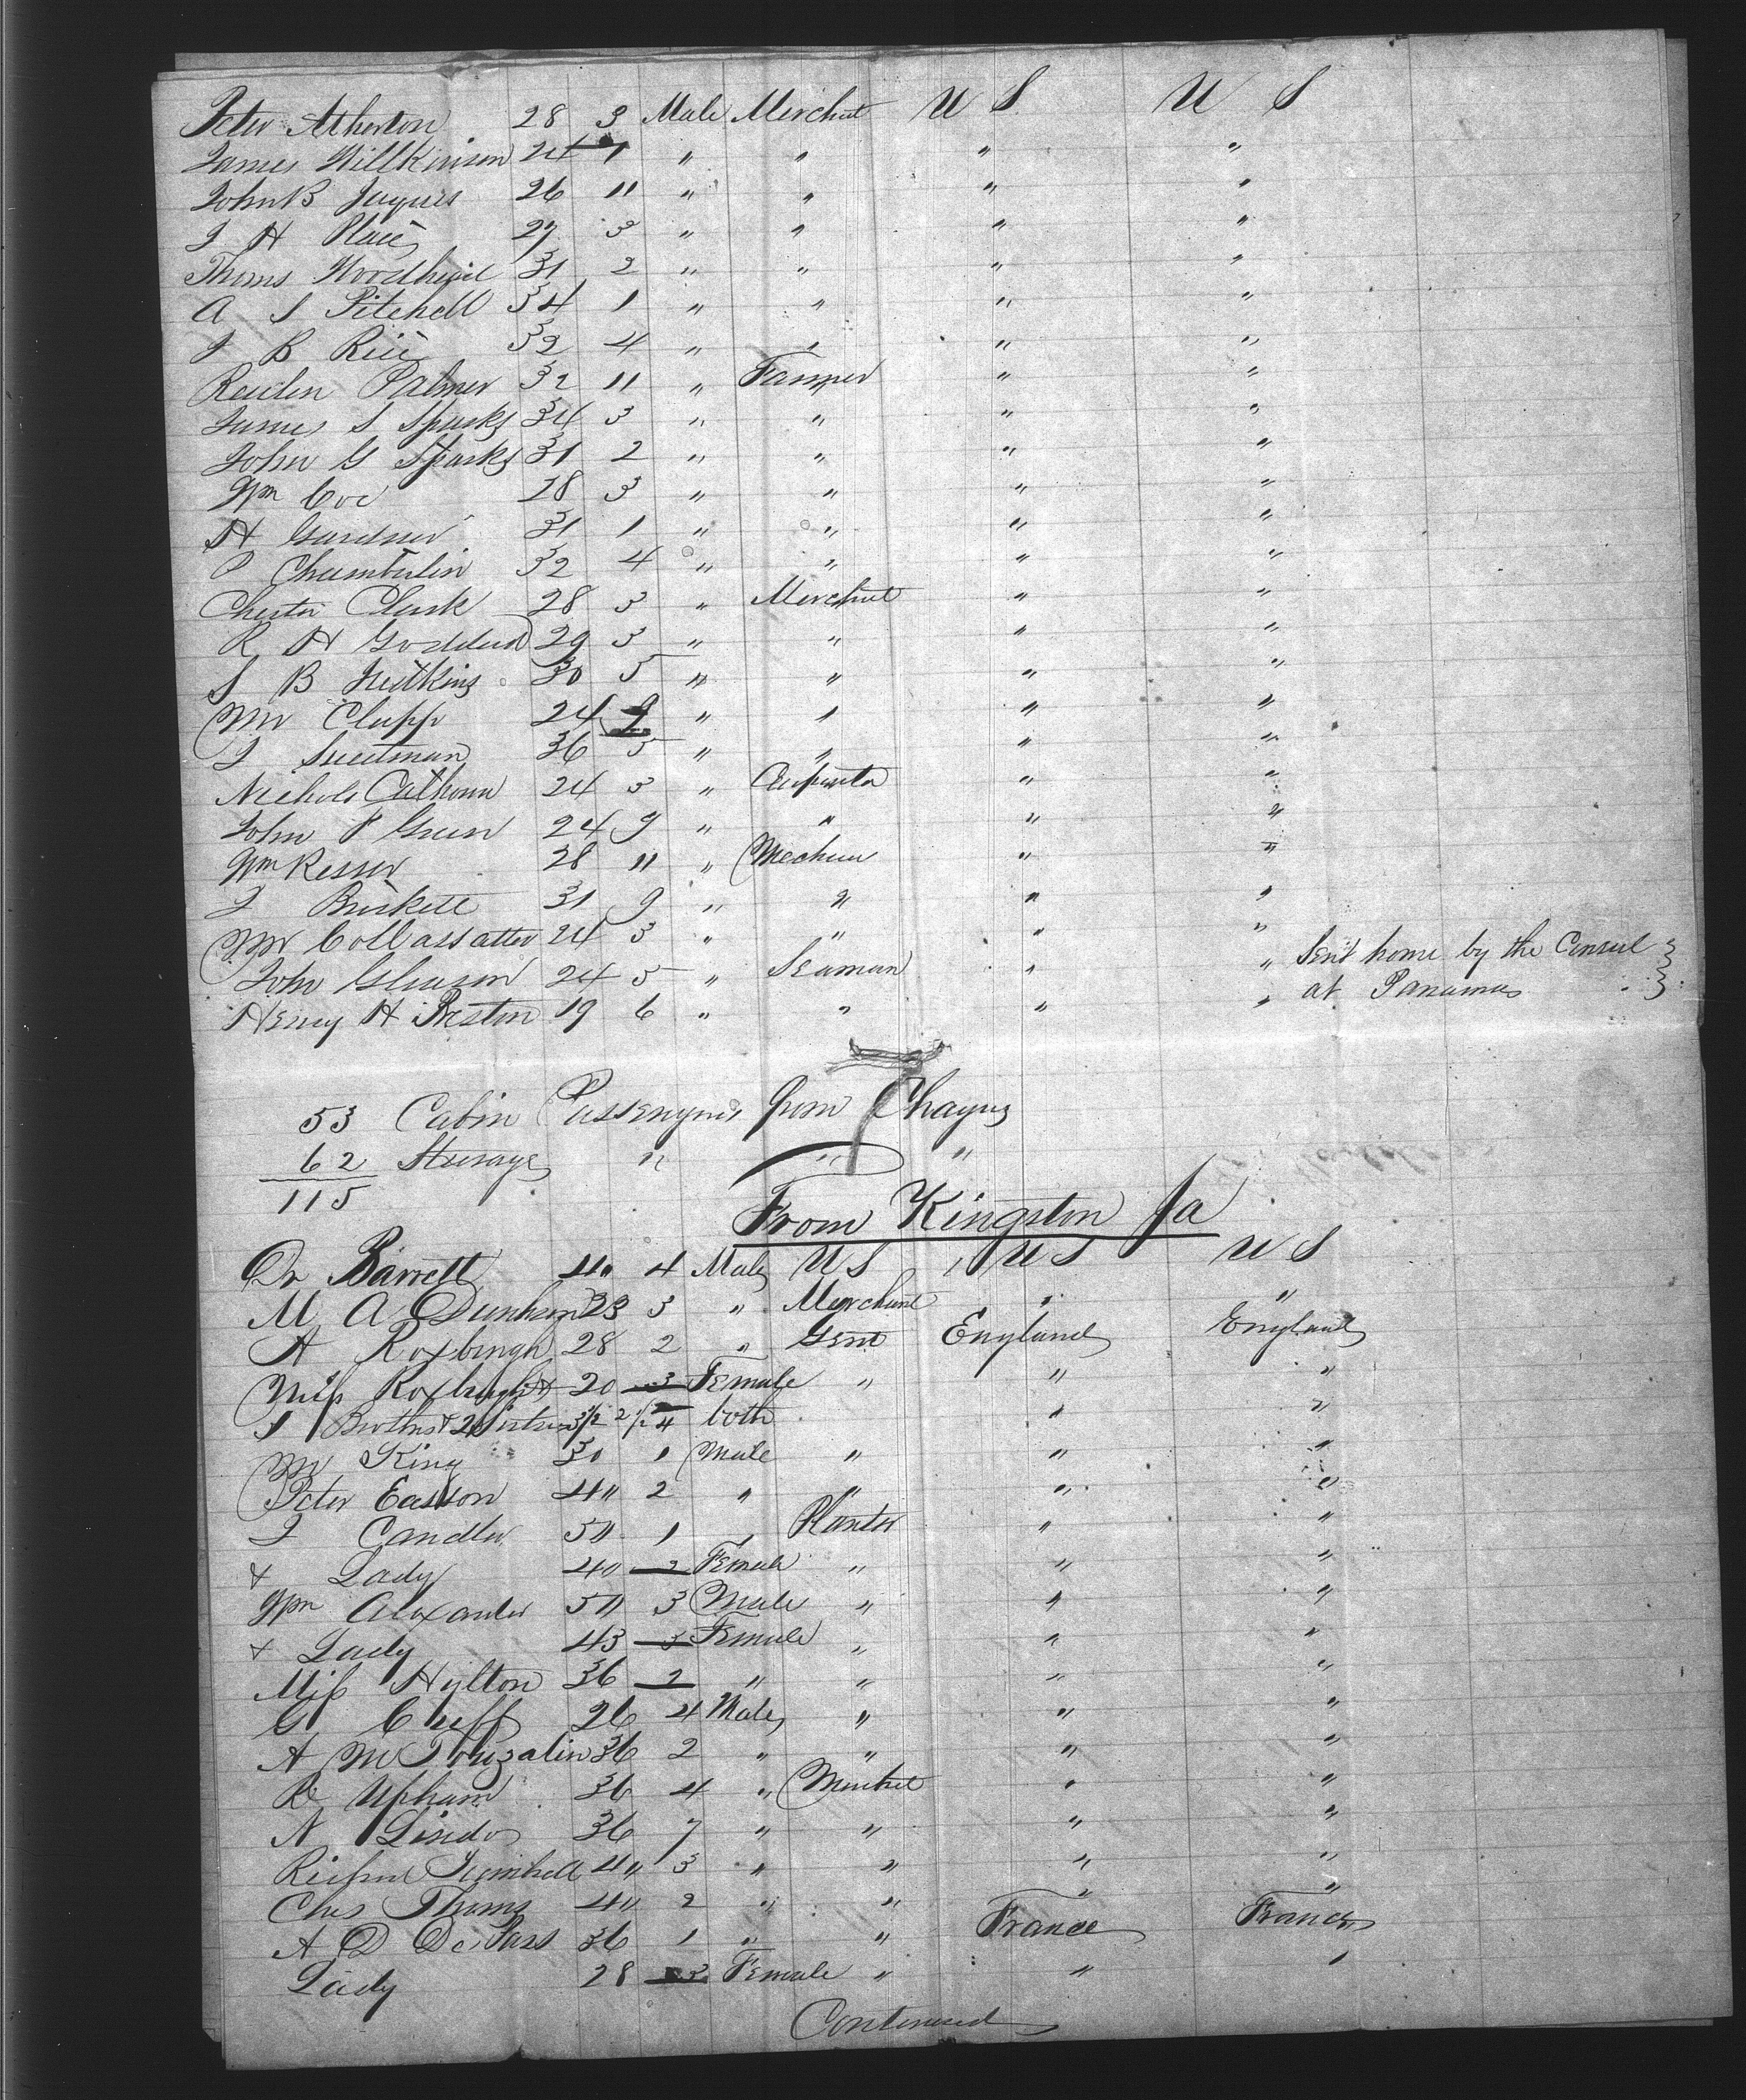 Peter Atherton 28 3 Male Merchat U S U S
James Willkinson 24 1 " " " "
John B Jaques 26 11 " " " "
J H Place 27 3 " " " "
Thoms Woodhead 31 2 " " " "
A S Pitchell 34 1 " " " "
J B Rice 32 4 " " " "
Reuben Palmer 32 11 " Farmer " "
James S Sparks 34 3 " " " "
John G Sparks 31 2 " " " "
Wm Coe 28 3 " " " "
H Gardner 31 1 " " " "
P Chamberlin 32 4 " " " "
Chester Clark 28 3 " Merchat " "
R H Goddard 29 3 " " " "
S B 30 5 " " " "
Mr Clapp 24 9 " " " "
J 36 5 " " " "
Nichols Calhoun 24 3 " " "
John F Green 24 9 " " " "
Wm Resser 28 11 " " "
J 31 9 " " " "
Mr 24 3 " " " "
John Gleason 24 5 " Seaman " " Sent home by the Consul
Henry H Preston 19 6 " " " " at Panama
53 Cabin Passengers from Chagres
62 Steerage " " "
115
From Kingston Ja
Dr Barrett 40 4 Male U S U S U S
M A Dunham 23 3 " Merchant " "
A Roxbrugh 28 2 " Gent England England
Miss Roxbrugh & 20 3 Female " " "
Brothers & 2 Sisters 3½ 2½ 4 both " "
Mr King 30 1 Male " " "
Peter Easson 40 2 " " " "
J Candler 50 1 " Planter " "
& Lady 40 2 Female " " "
Wm Alexander 50 3 Male " " "
& Lady 43 3 Female " " "
Miss Hylton 36 2 " " " "
G 26 4 Male " " "
A M Touzalin 36 2 " " " "
R Upham 36 4 " Merchat " "
N Lindo 36 7 " " " "
40 3 " " " "
Chas Thoms 40 2 " " " "
A D De Pass 36 1 " " France France
Lady 28 3 Female " " "
Continued